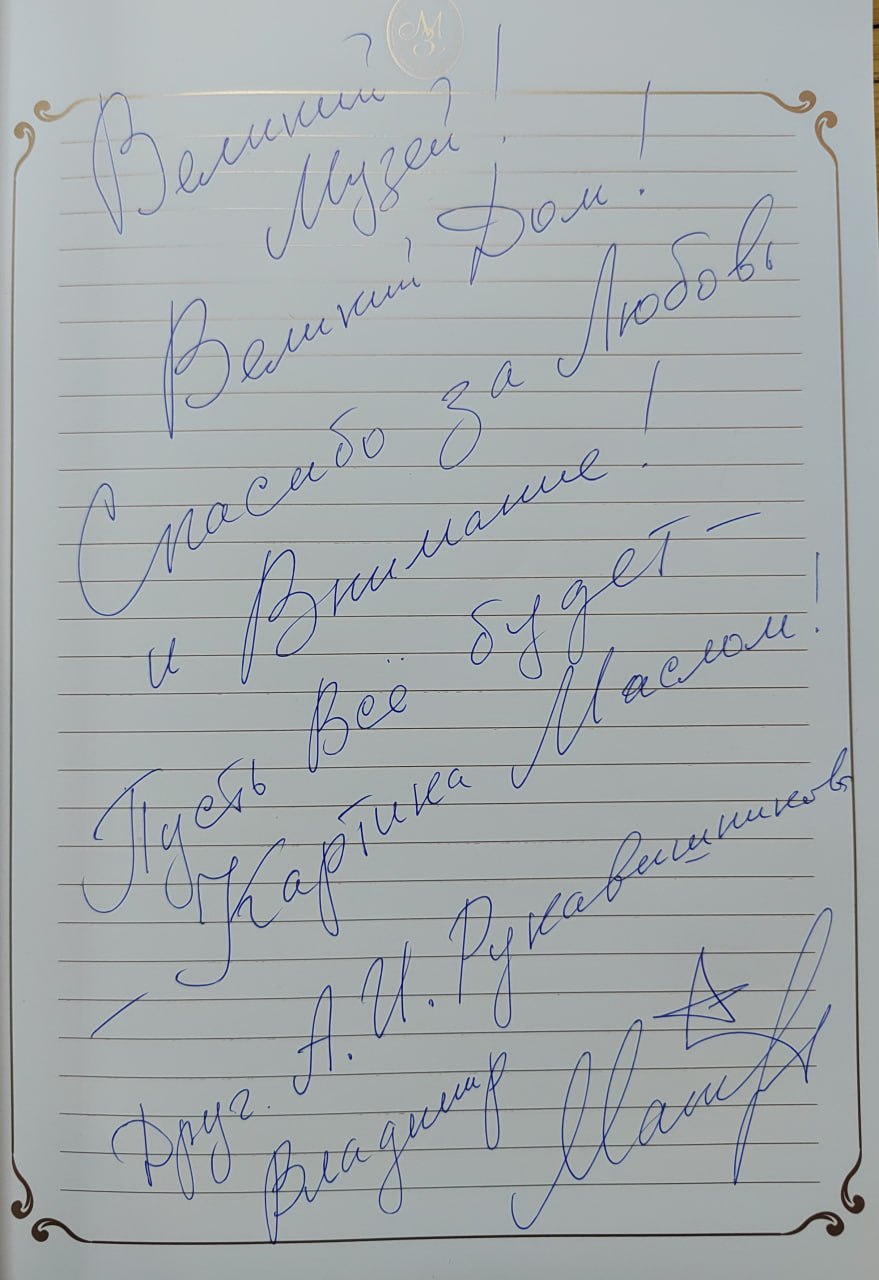 МЗ
Великий
Музей!
Великий Дом!
Спасибо за Любовь
и Внимание!
Пусть Всё будет —
— Картина Маслом!
Друг А. И. Рукавишникова
Владимир